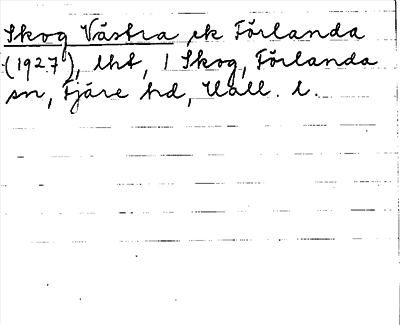 Skog Västra ek Förlanda
(1927), lht, 1 Skog, Förlanda
sn, Fjäre hd, Hall. l.